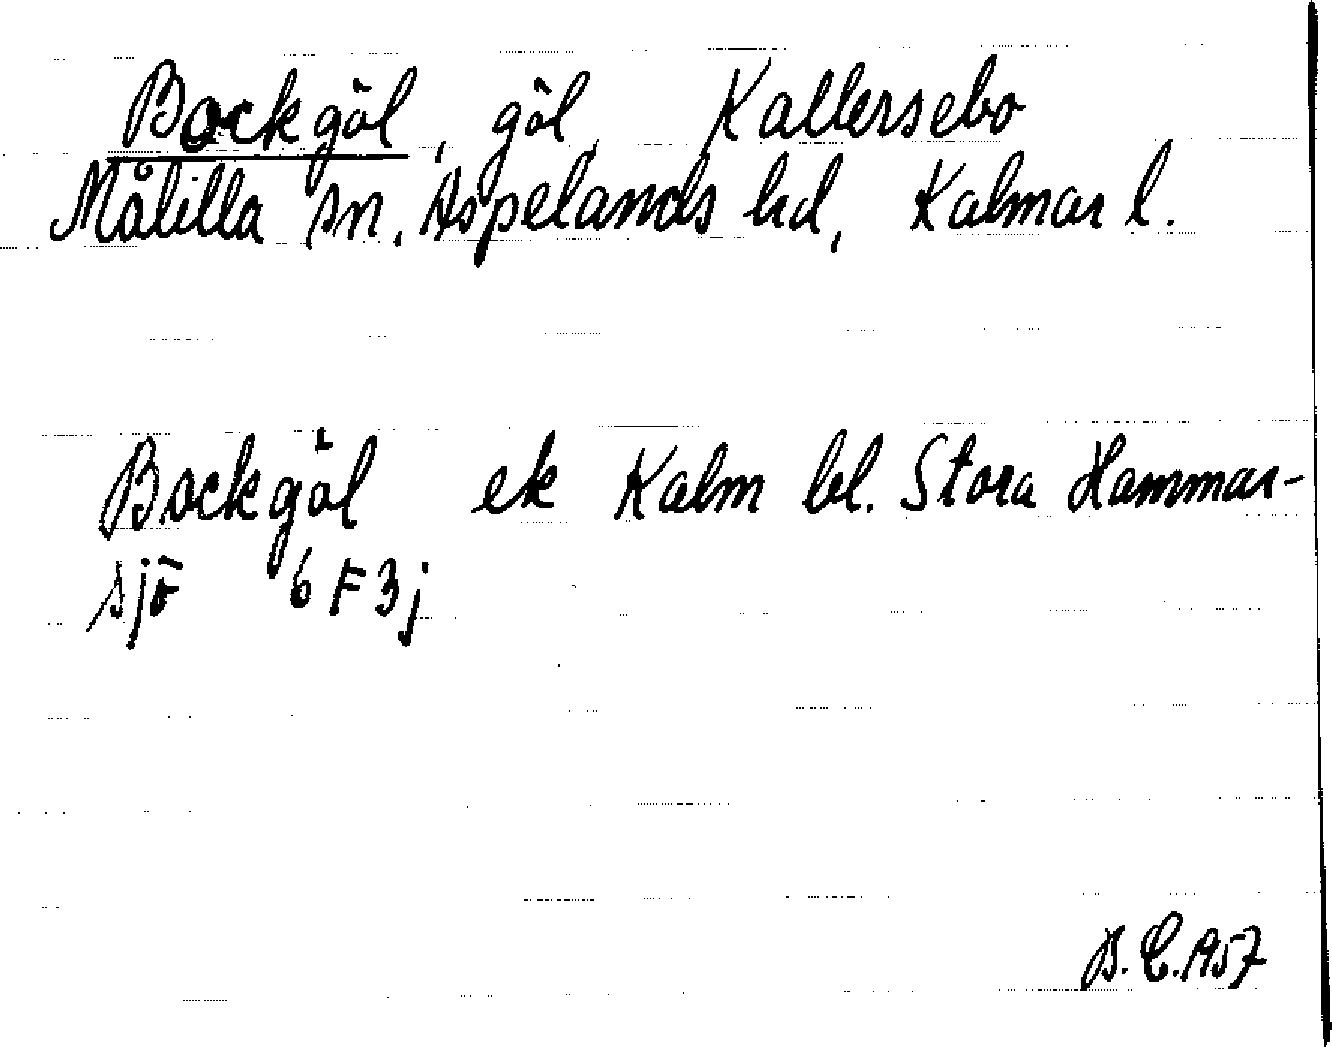 Bockgöl, göl, Kallersebo
Målilla sn, Aspelands hd, Kalmar l.
Bockgöl ek Kalm bl. Stora Hammar-
sjö 6F3j
B.E.1957